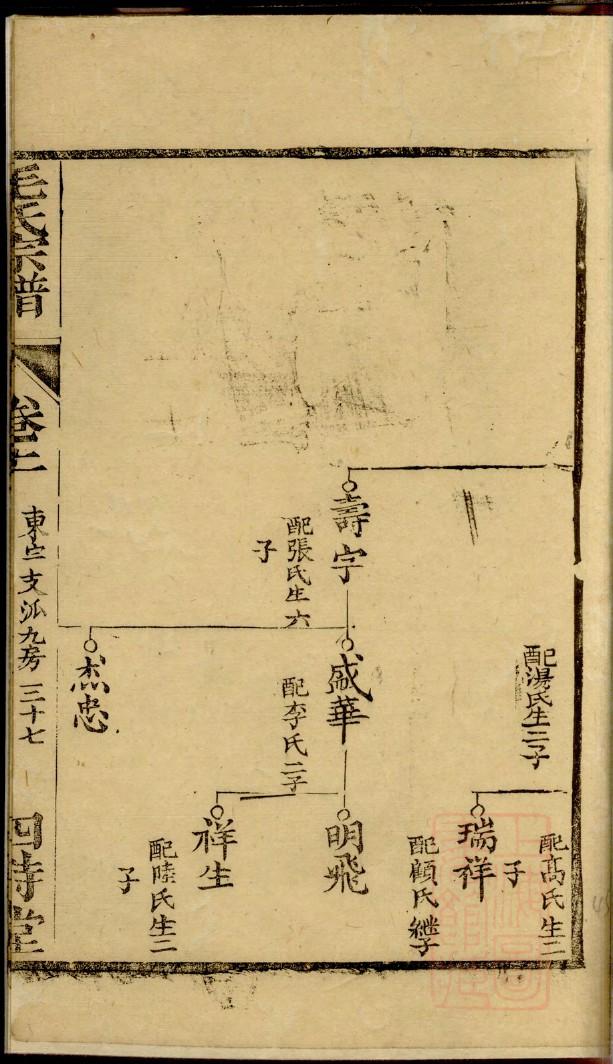 配高氏生二
子
瑞祥
配顧氏繼子
配湯氏生二子
壽宇
配張氏生六
子
盛華
配李氏二子
明飛
祥生
配陸氏生二
子
杰忠
毛氏宗譜
卷十二
東宅支派九房 三十七
四詩堂